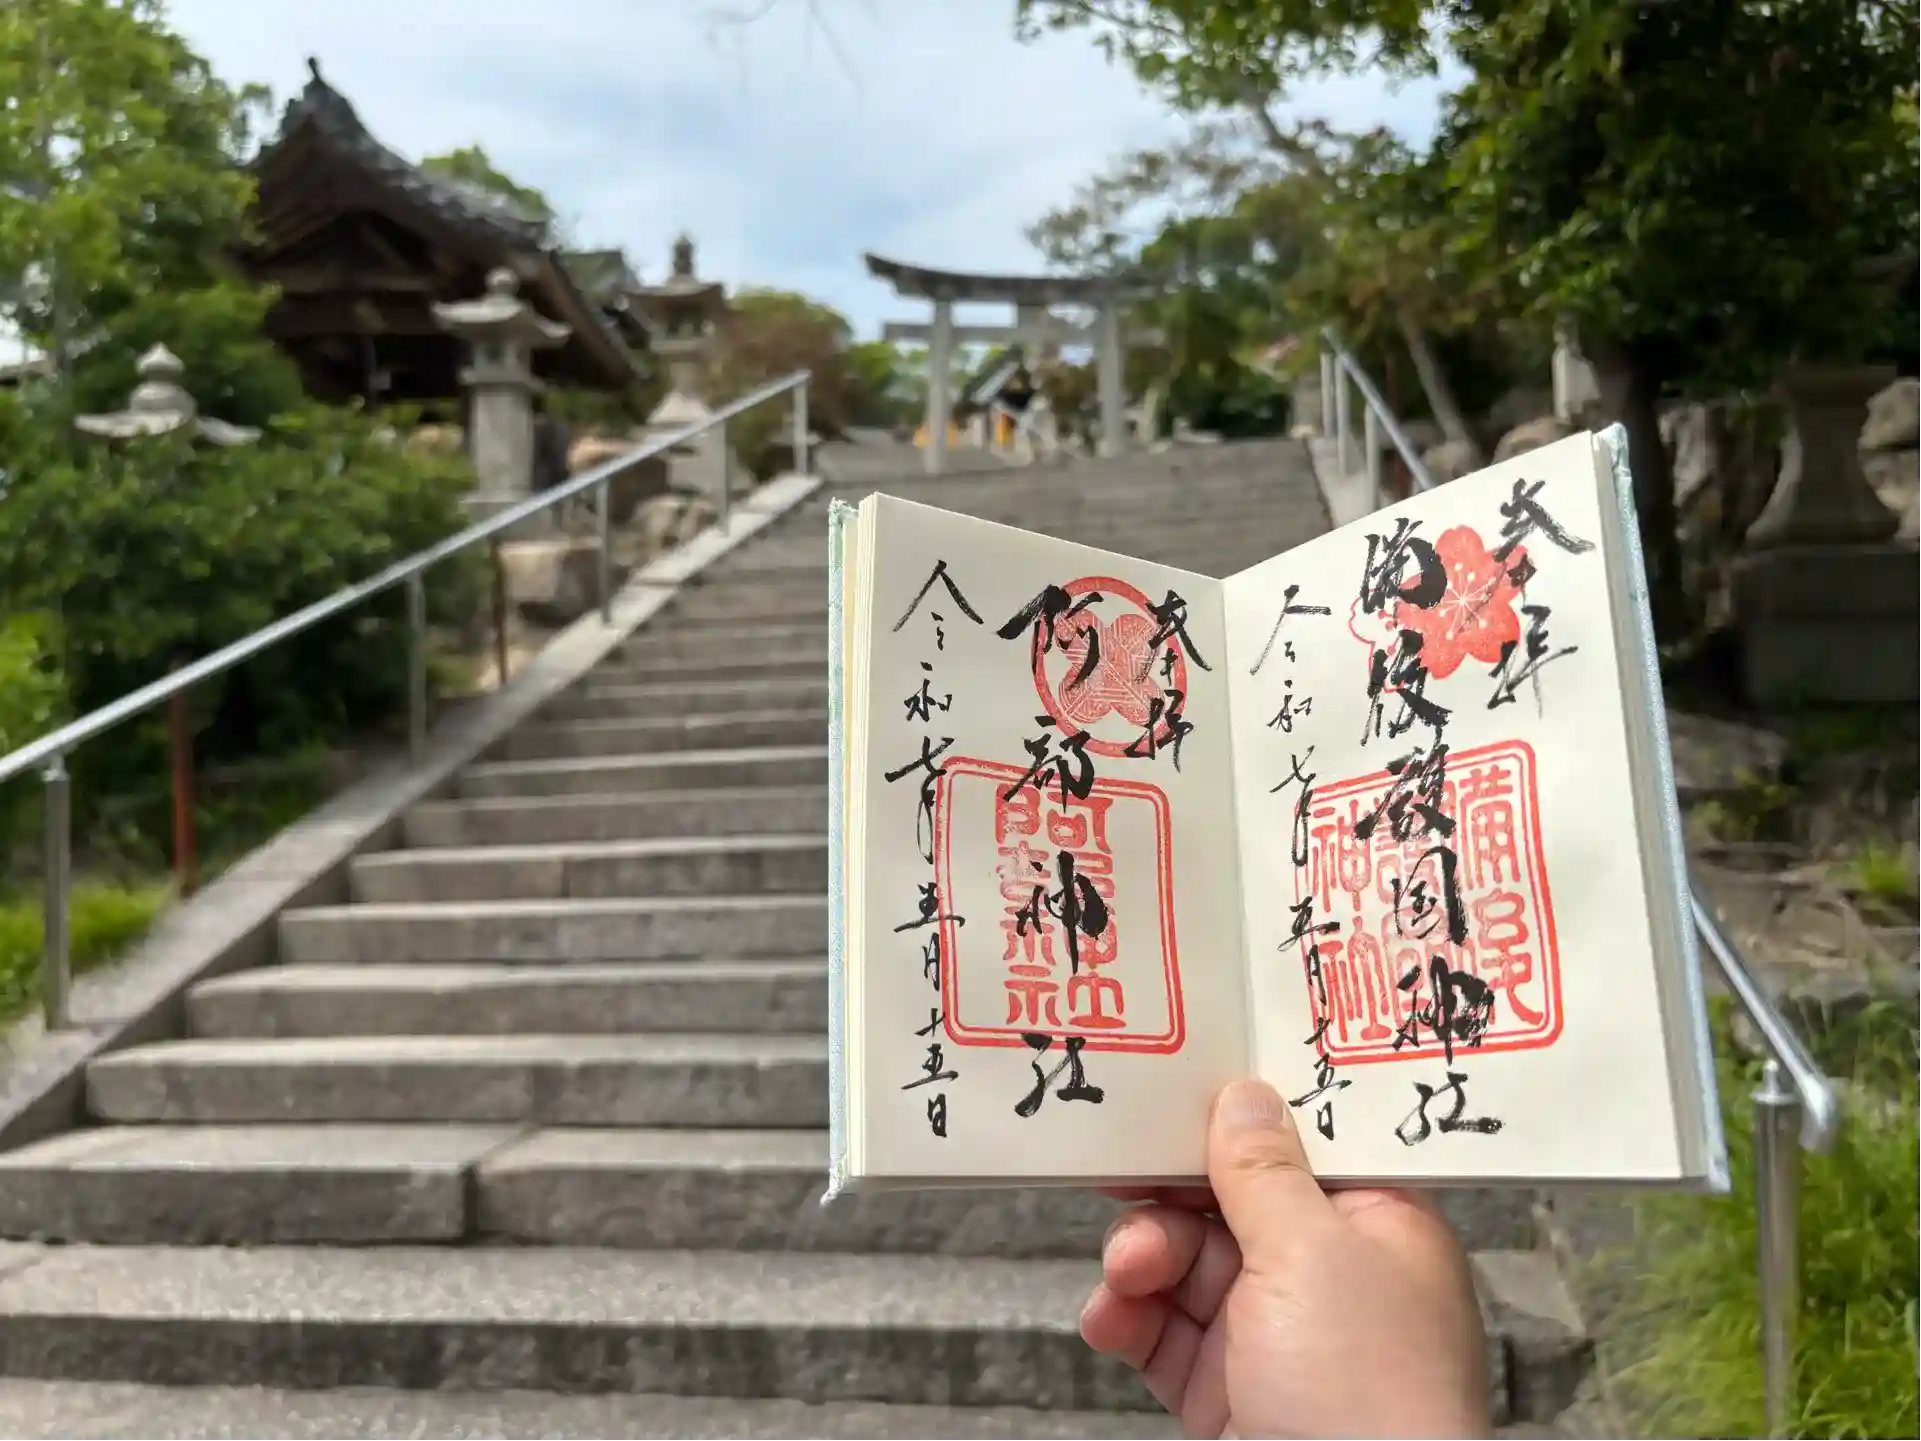 奉拝
備後護国神社
令和七年五月十五日
備後
護國
神社
奉拝
阿部神社
令和七年五月十五日
阿部神社